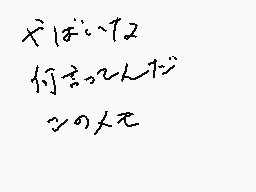 やばいな
何言ってんだ
このメモ